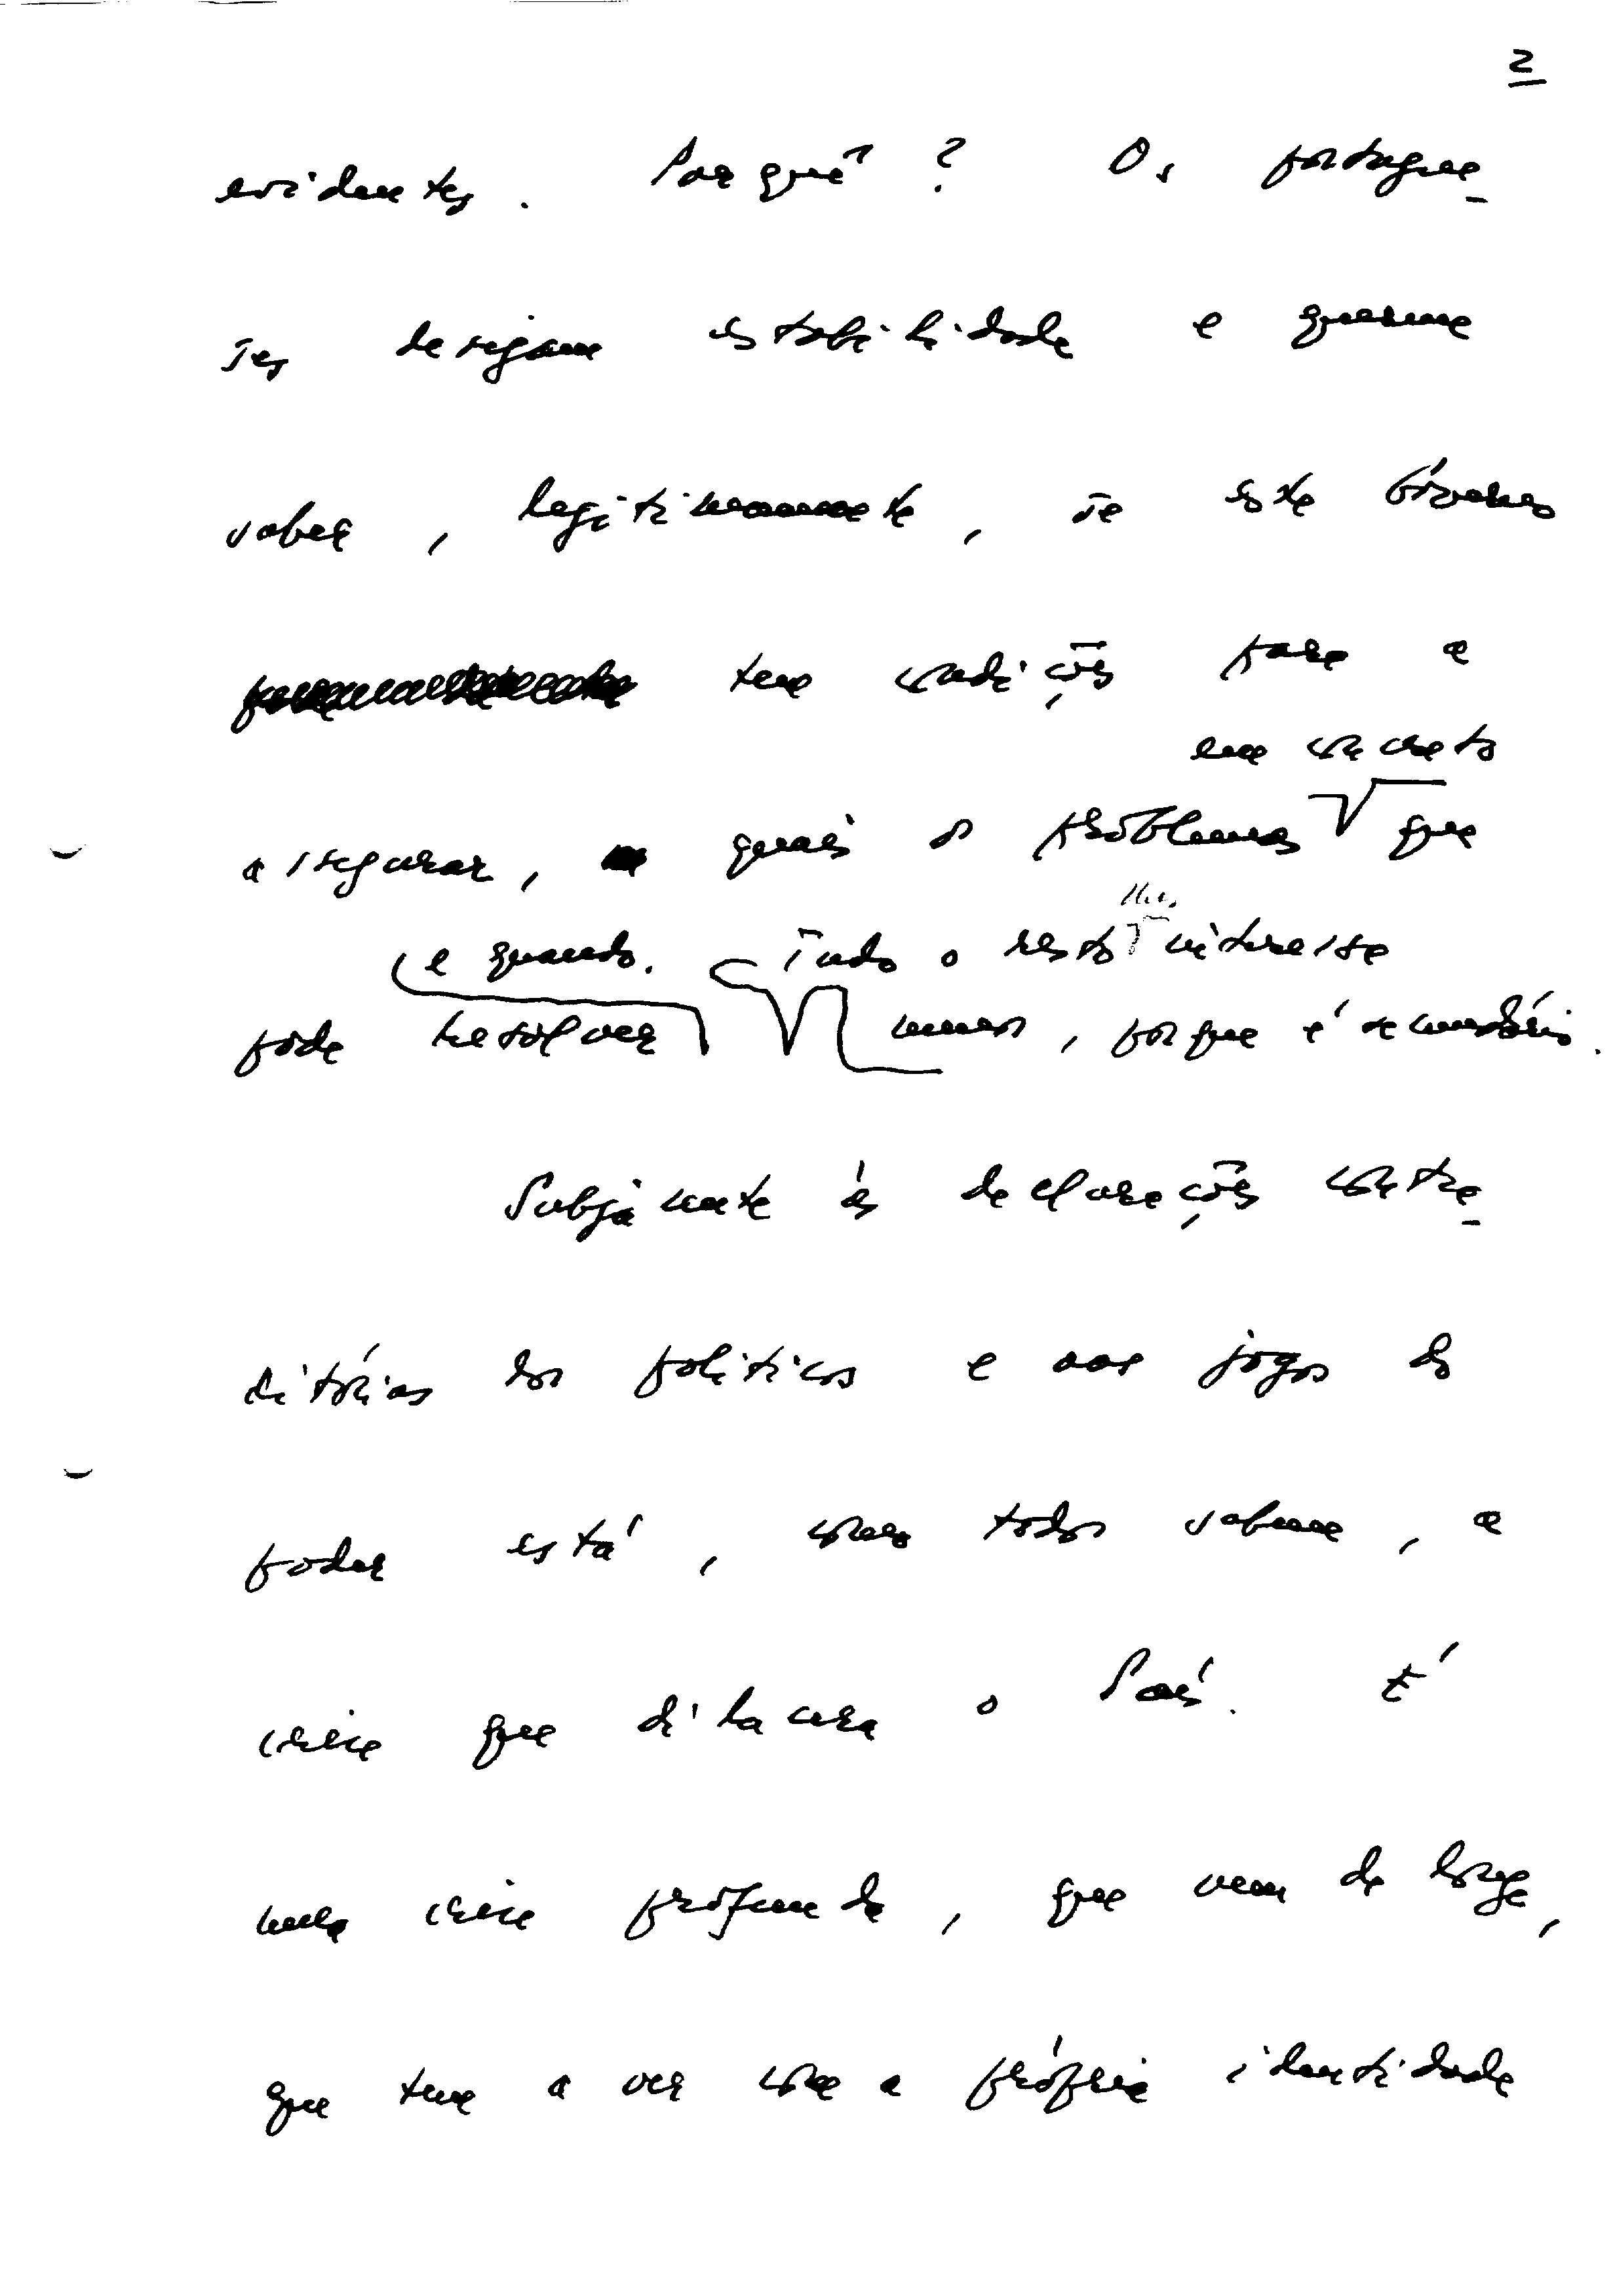 2
evidentes. Porquê? Os portugue-
ses desejam estabilidade e querem
saber, legitimamente, se este Governo
tem condições para a
em concreto
assegurar, quais os problemas que
lhes
e quando. Tudo o resto interessa
pode resolver menos, porque é secundário.
Subjacente às declarações contra-
ditórias dos políticos e aos jogos do
poder está, como todos sabem, a
crise que dilacera o País. É
uma crise profunda, que vem de longe,
que tem a ver com a própria identidade